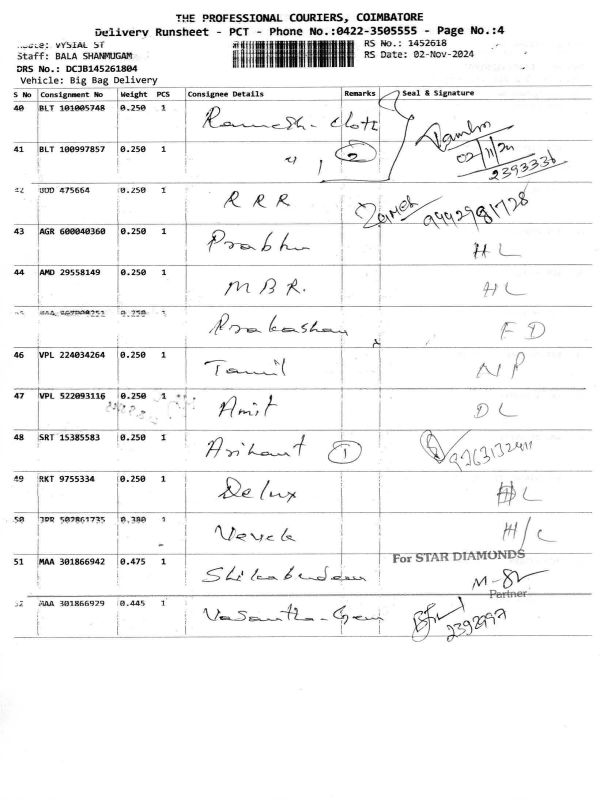 THE PROFESSIONAL COURIERS, COIMBATORE
Delivery Runsheet - PCT - Phone No.:0422-3505555 - Page No.:4
Route: VYSIAL ST RS No.: 1452618
Staff: BALA SHANMUGAM RS Date: 02-Nov-2024
DRS No.: DCJB145261804
Vehicle: Big Bag Delivery
S No Consignment No Weight PCS Consignee Details Remarks Seal & Signature
40 BLT 101005748 0.250 1 Ramesh-Cloth
41 BLT 100997857 0.250 1 " , 2 02/11/24
2393336
475664 0.250 1 R R R 9442981728
43 AGR 600040360 0.250 1 Prabhu HL
44 AMD 29558149 0.250 1 M B R. HL
0.250 1 Prakashan FD
46 VPL 224034264 0.250 1 Tamil NP
47 VPL 522093116 0.250 1 Amit DL
48 SRT 15385583 0.250 1 Arihant 1
49 RKT 9755334 0.250 1 Delux HL
50 JPR 502861735 0.380 1 H/C
For STAR DIAMONDS
51 MAA 301866942 0.475 1
Partner
52 MAA 301866929 0.445 1 Vasantha-Gem